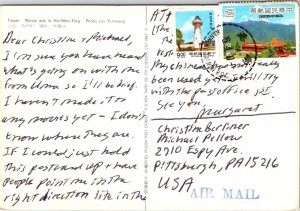 Taipei Movie ads in Hsi Men Ting Photo Lin Yi-hsiung
Dear Christine & Michael,
I'm sure you have heard
what's going on with me
from Uma so I'll be brief.
I haven't made it to
any movies yet - I don't
know where they are.
If I could just hold
this postcard up & have
people point me in the
right direction like in the
been used yet - I'll try
with the post office
See you,
Margaret
Christine Berliner
Michael Pellow
2910 Espy Ave.
Pittsburgh, PA 15216
USA
AIR MAIL
中華民國郵票